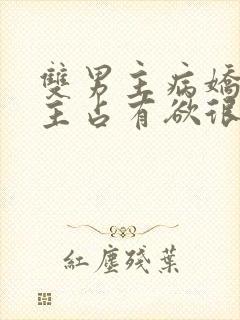 雙男主病嬌
主占有欲很
紅塵殘葉